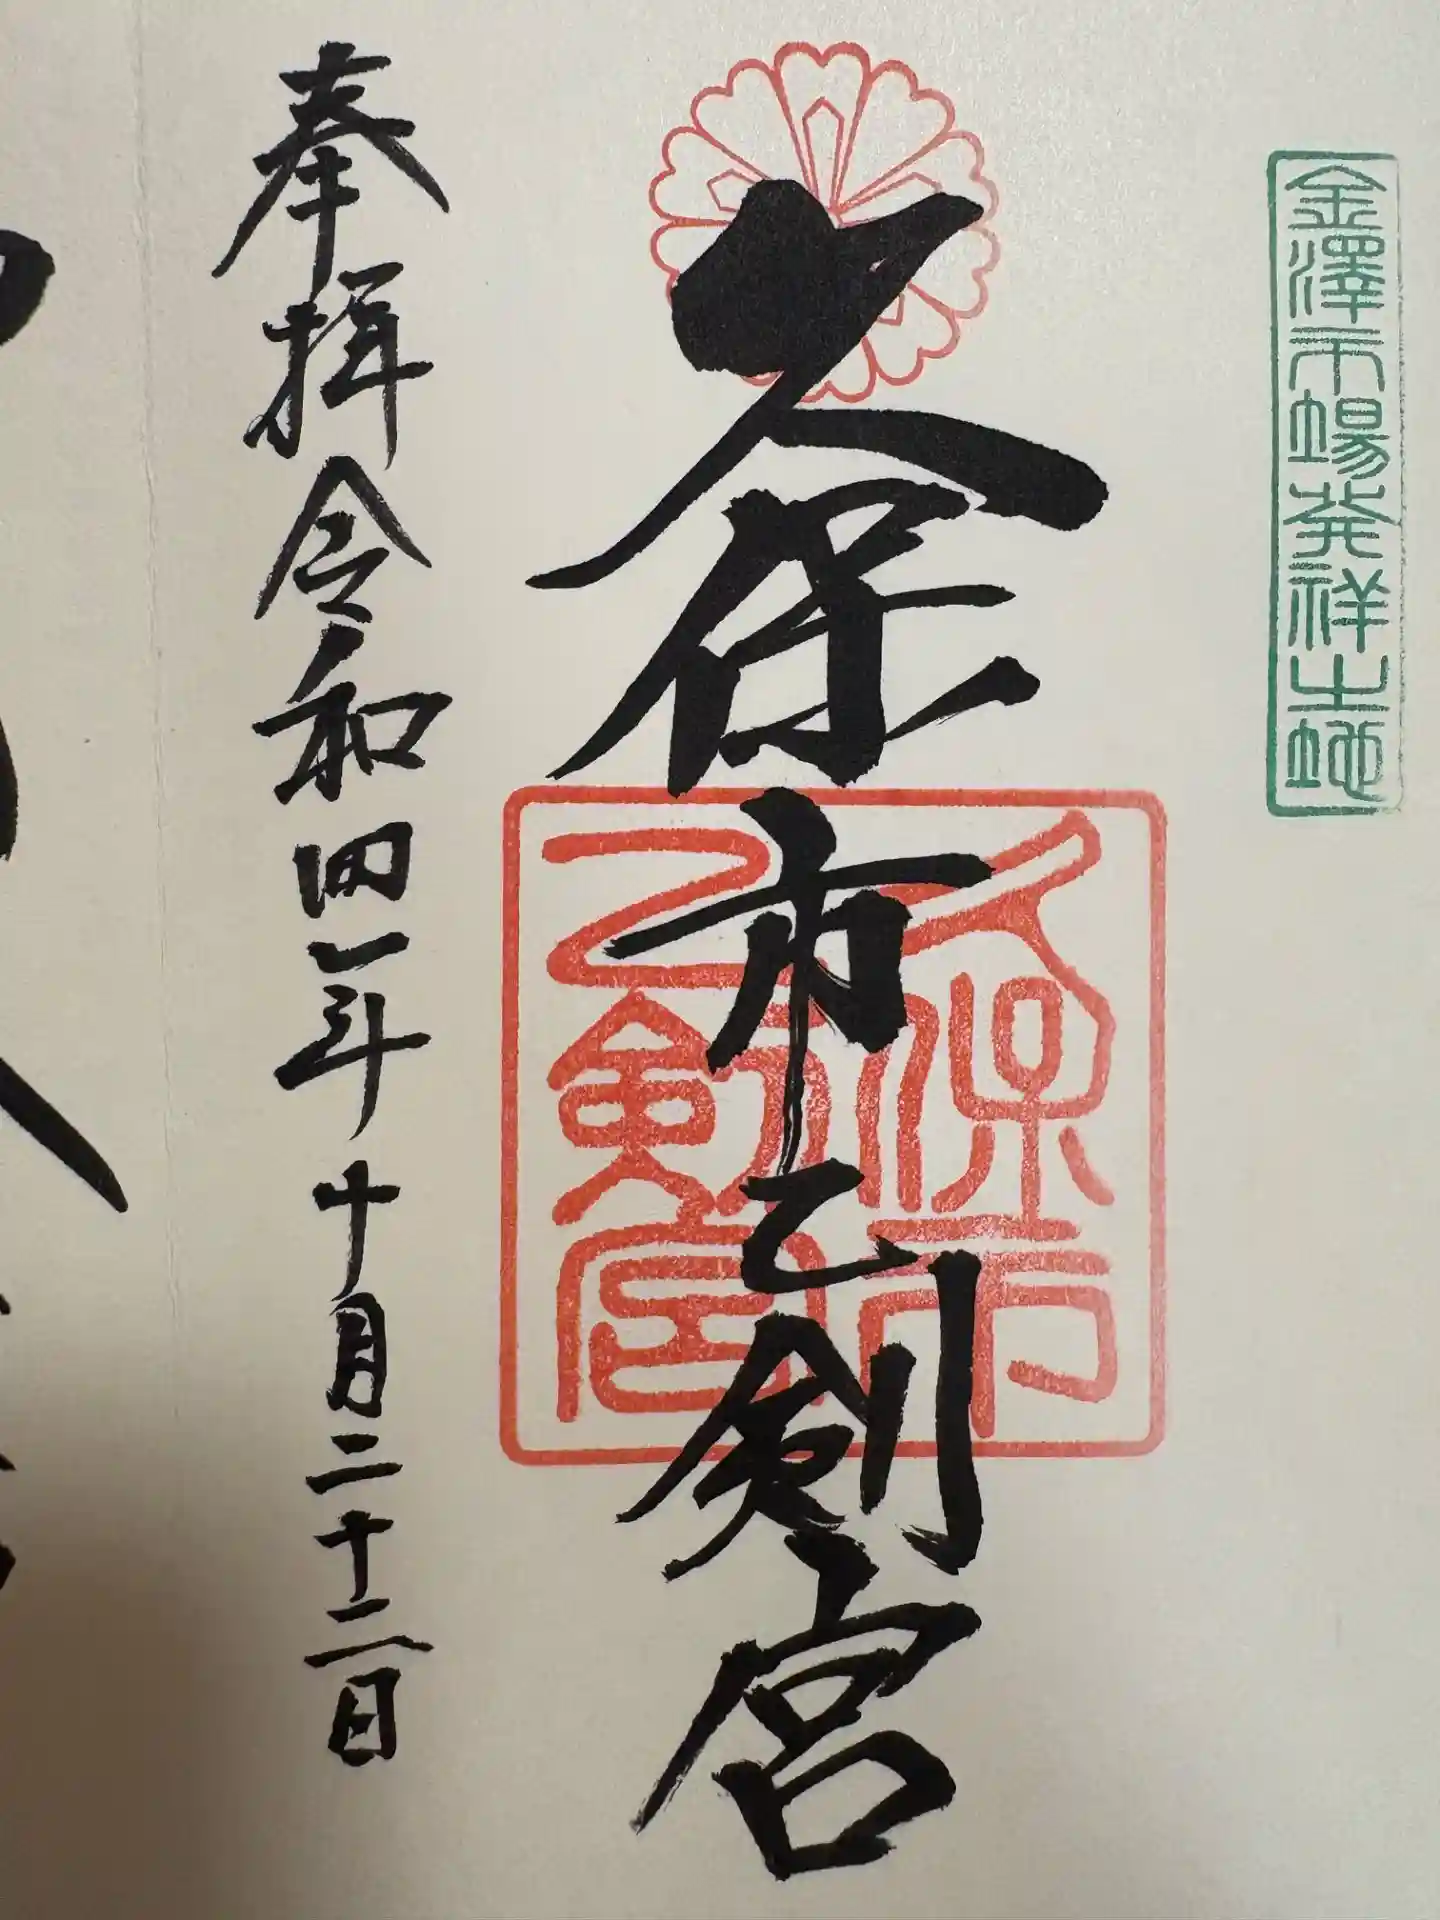 金澤市場発祥之地
久保市乙剣宮
久保市
乙剣宮
奉拝 令和四年十月二十二日